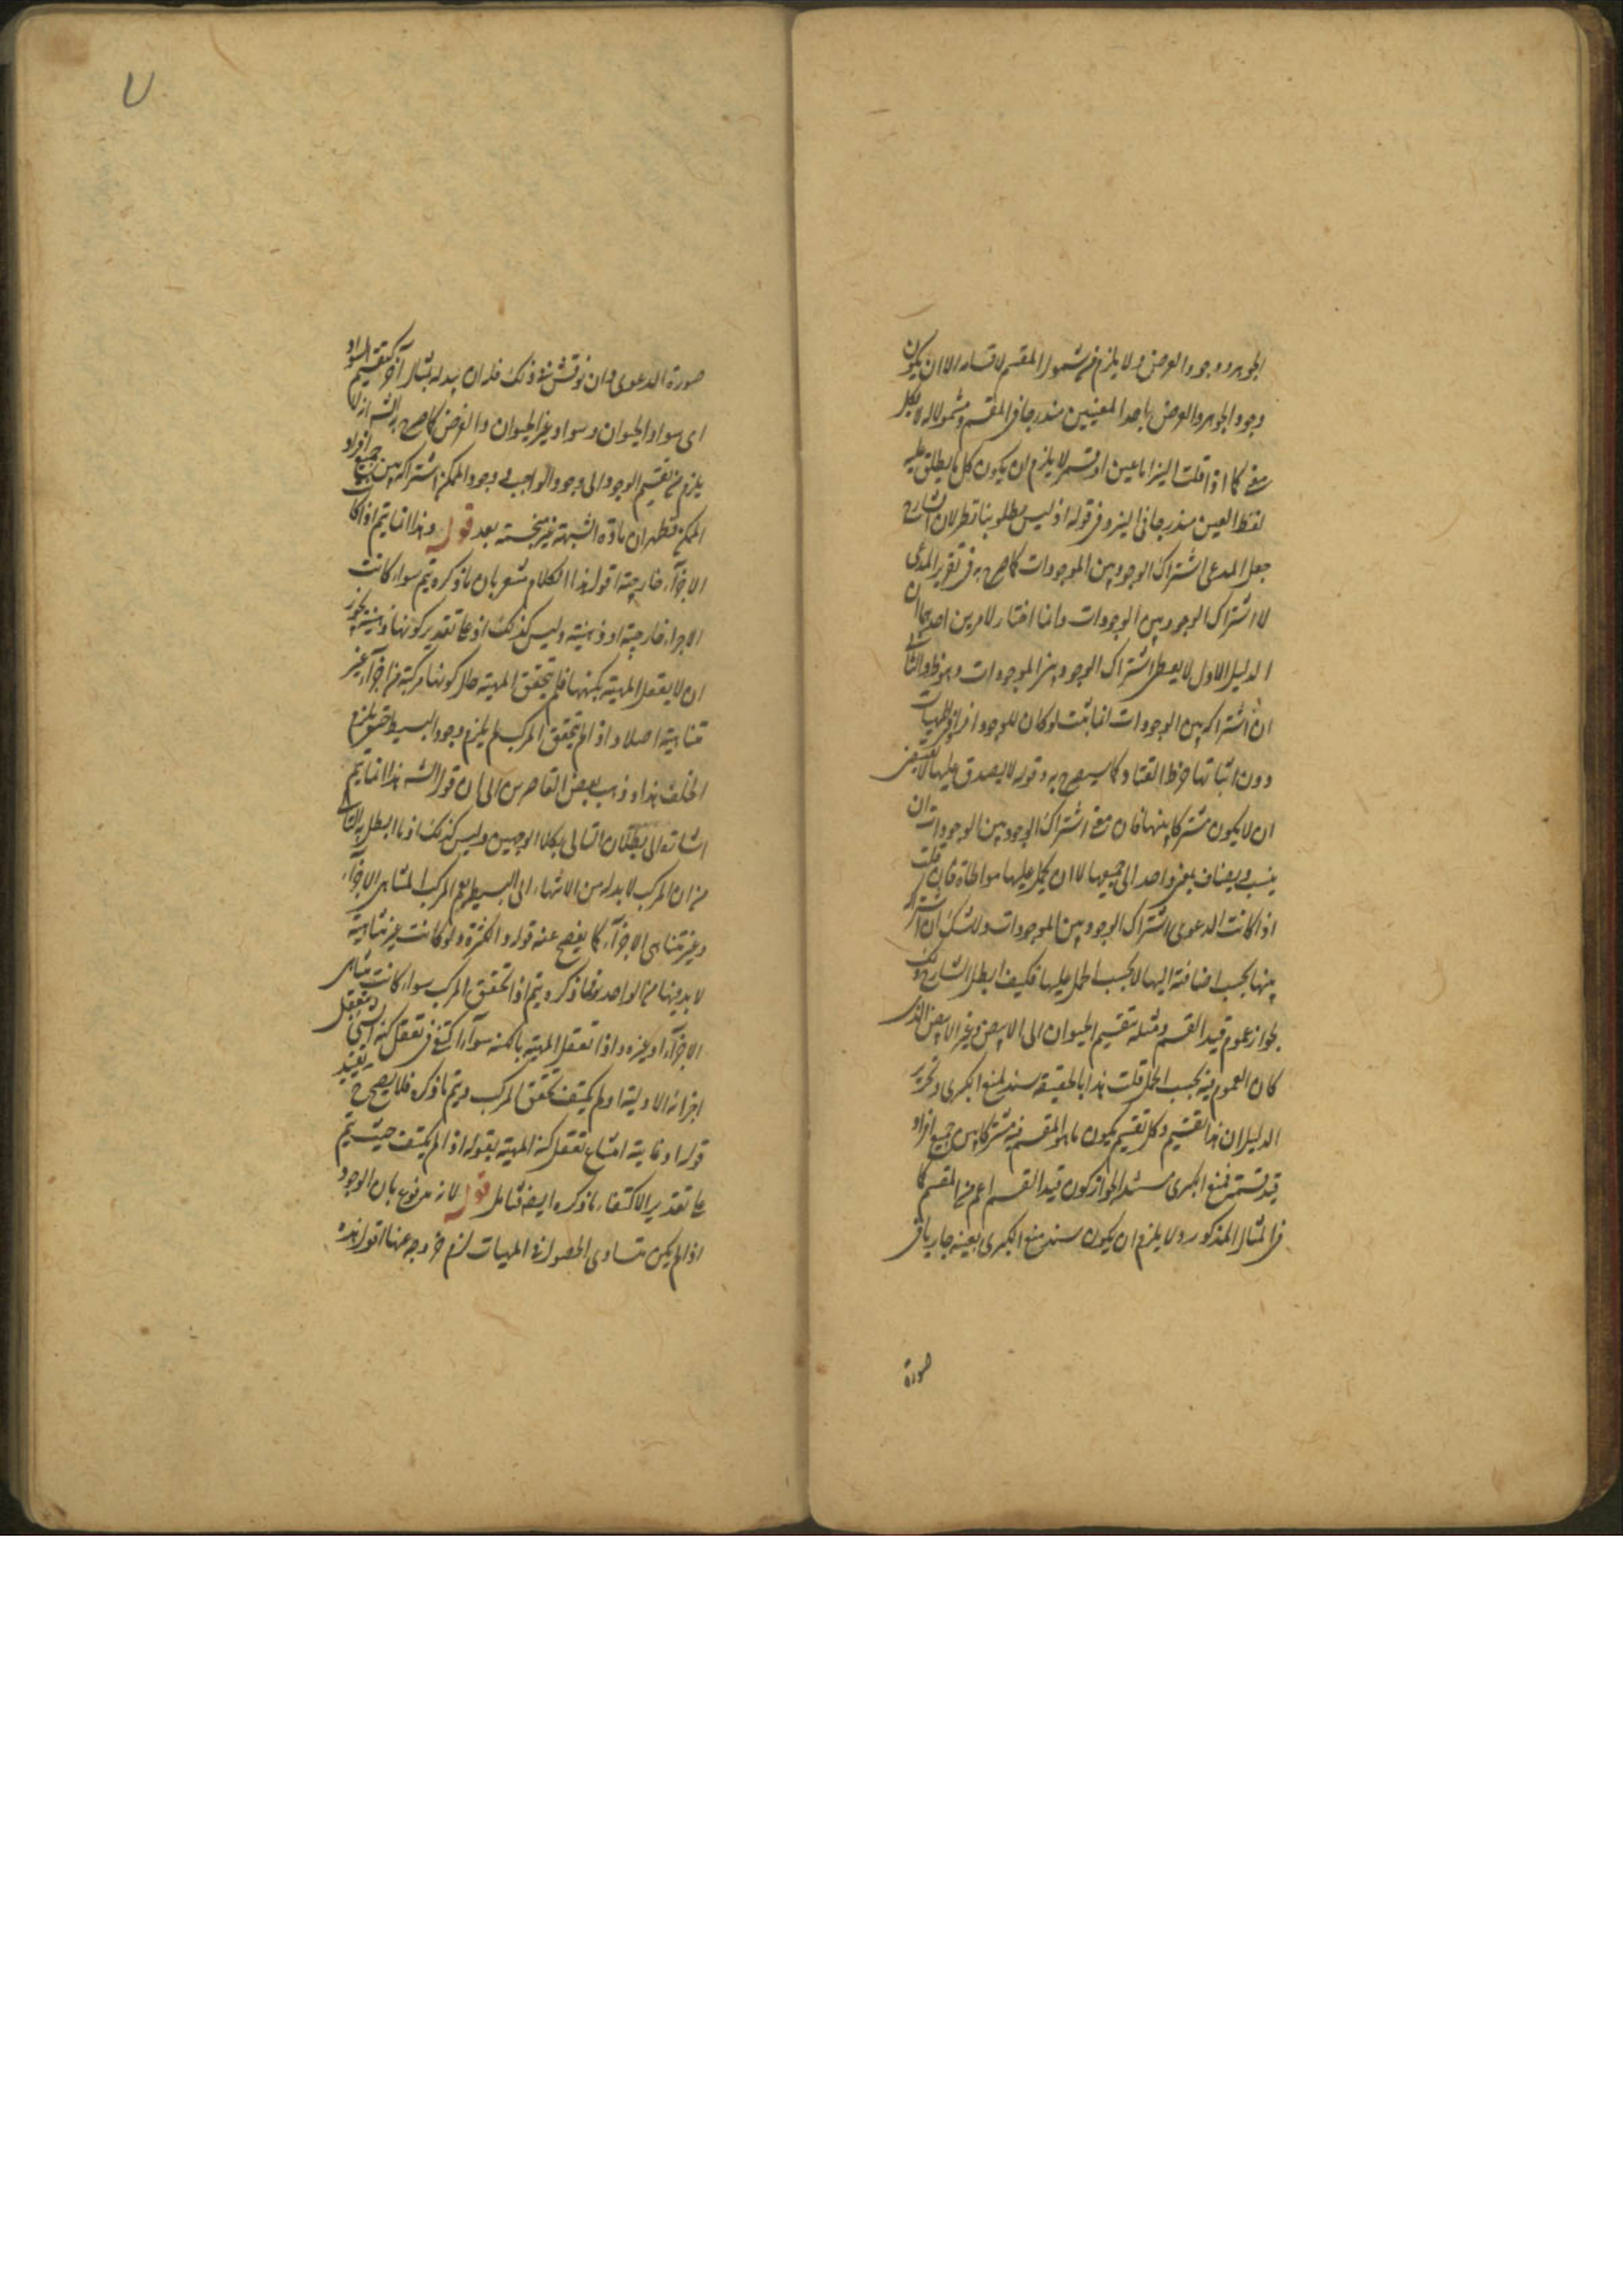 الجوهر ووجود العرض ولا يلزم من شمول المقسم لاقسامه الا ان يكون
وجود الجوهر والعرض باحد المعنيين مندرجا في المقسم ومشمولا له لا بكل
معنى كما اذا قلت اليزا اما عين او قسم لا يلزم ان يكون كل ما يطلق عليه
لفظ العين مندرجا في اليز وفي قوله اذ ليس مطلوبنا نظر لان الشارح
جعل المدعى اشتراك الوجود بين الموجودات كما صرح به في تقرير المدعى
لا اشتراك الوجود بين الوجودات وانما اختار لامرين احدهما ان
الدليل الاول لا يعطي اشتراك الوجود بين الموجودات وهو ظ والثاني
ان اشتراكه بين الوجودات انما يثبت لو كان للوجود افراد في المهيات
دون اثباتها خرط القتاد كما سيصرح به وقوله لا يصدق عليها لا يقتضي
ان لا يكون مشتركا بينها فان معنى اشتراك الوجود بين الوجودات ان
ينسب ويضاف بمعنى واحد الى جميعها لا ان يحمل عليها مواطاة فان قلت
اذا كانت الدعوى اشتراك الوجود بين الموجودات ولا شك ان اشتراكه
بينها بحسب اضافته اليها لا بحسب الحمل عليها فكيف ابطل الشارح ذلك
بجواز عموم قيد القسم ومثله بتقسيم الحيوان الى الابيض وغير الابيض الذي
كان العموم فيه بحسب الحمل قلت هذا بالحقيقة سند لمنع الكبرى وتحرير
الدليل ان هذا تقسيم وكل تقسيم يكون ما هو المقسم فيه مشتركا بين جميع افراد
قيد قسمته فمنع الكبرى مستندا بجواز كون قيد القسم اعم من المقسم كما
في المثال المذكور ولا يلزم ان يكون سند منع الكبرى بعينه جاريا في
صورة
صورة الدعوى وان نوقش في ذلك فله ان يبدله بمثال آخر كتقسيم السواد
الى سواد الحيوان وسواد غير الحيوان والغرض كما صرح به الشه انه لا
يلزم من تقسيم الوجود الى وجود الواجب ووجود الممكن اشتراكه بين جميع افراد
الممكن فظهر ان مادة الشبهة غير منحسمة بعد قوله وهذا انما يتم اذا كانت
الاجزاء خارجية اقول هذا الكلام مشعر بان ما ذكره يتم سواء كانت
الاجزاء خارجية او ذهنية وليس كذلك اذ على تقدير كونها ذهنية يجوز
ان لا يعقل المهية بكنهها فلم تتحقق المهية حال كونها مركبة من اجزاء غير
متناهية اصلا واذا لم يتحقق المركب لم يلزم وجود البسيط حتى يلزم
الخلف هذا وذهب بعض القاصرين الى ان قول الشه هذا انما يتم
اشارة الى بطلان التالي بكلا الوجهين وليس كذلك اذ ما ابطل به الثاني
من ان المركب لا بد له من الانتهاء الى البسيط يعم المركب المتناهي الاجزاء
وغير متناهي الاجزاء كما يفصح عنه قوله والكثرة ولو كانت غير متناهية
لا بد فيها من الواحد فما ذكره يتم اذا تحقق المركب سواء كانت متناهي
الاجزاء او غيره واذا تعقل المهية بالكنه سواء اكتفى في تعقل كنه الشئ بتعقل
اجزائه الاولية او لم يكتف تحقق المركب ويتم ما ذكره فلا يصح ح تقييد
قوله او غاية امتناع تعقل كنه المهية بقوله اذا لم يكتف حيث يتم
على تقدير الاكتفاء ما ذكره ايضا فتامل قوله لانه مدفوع بان الوجود
اذا لم يكن متساوي الحصول في المهيات لزم خروجه عنها اقول هذه